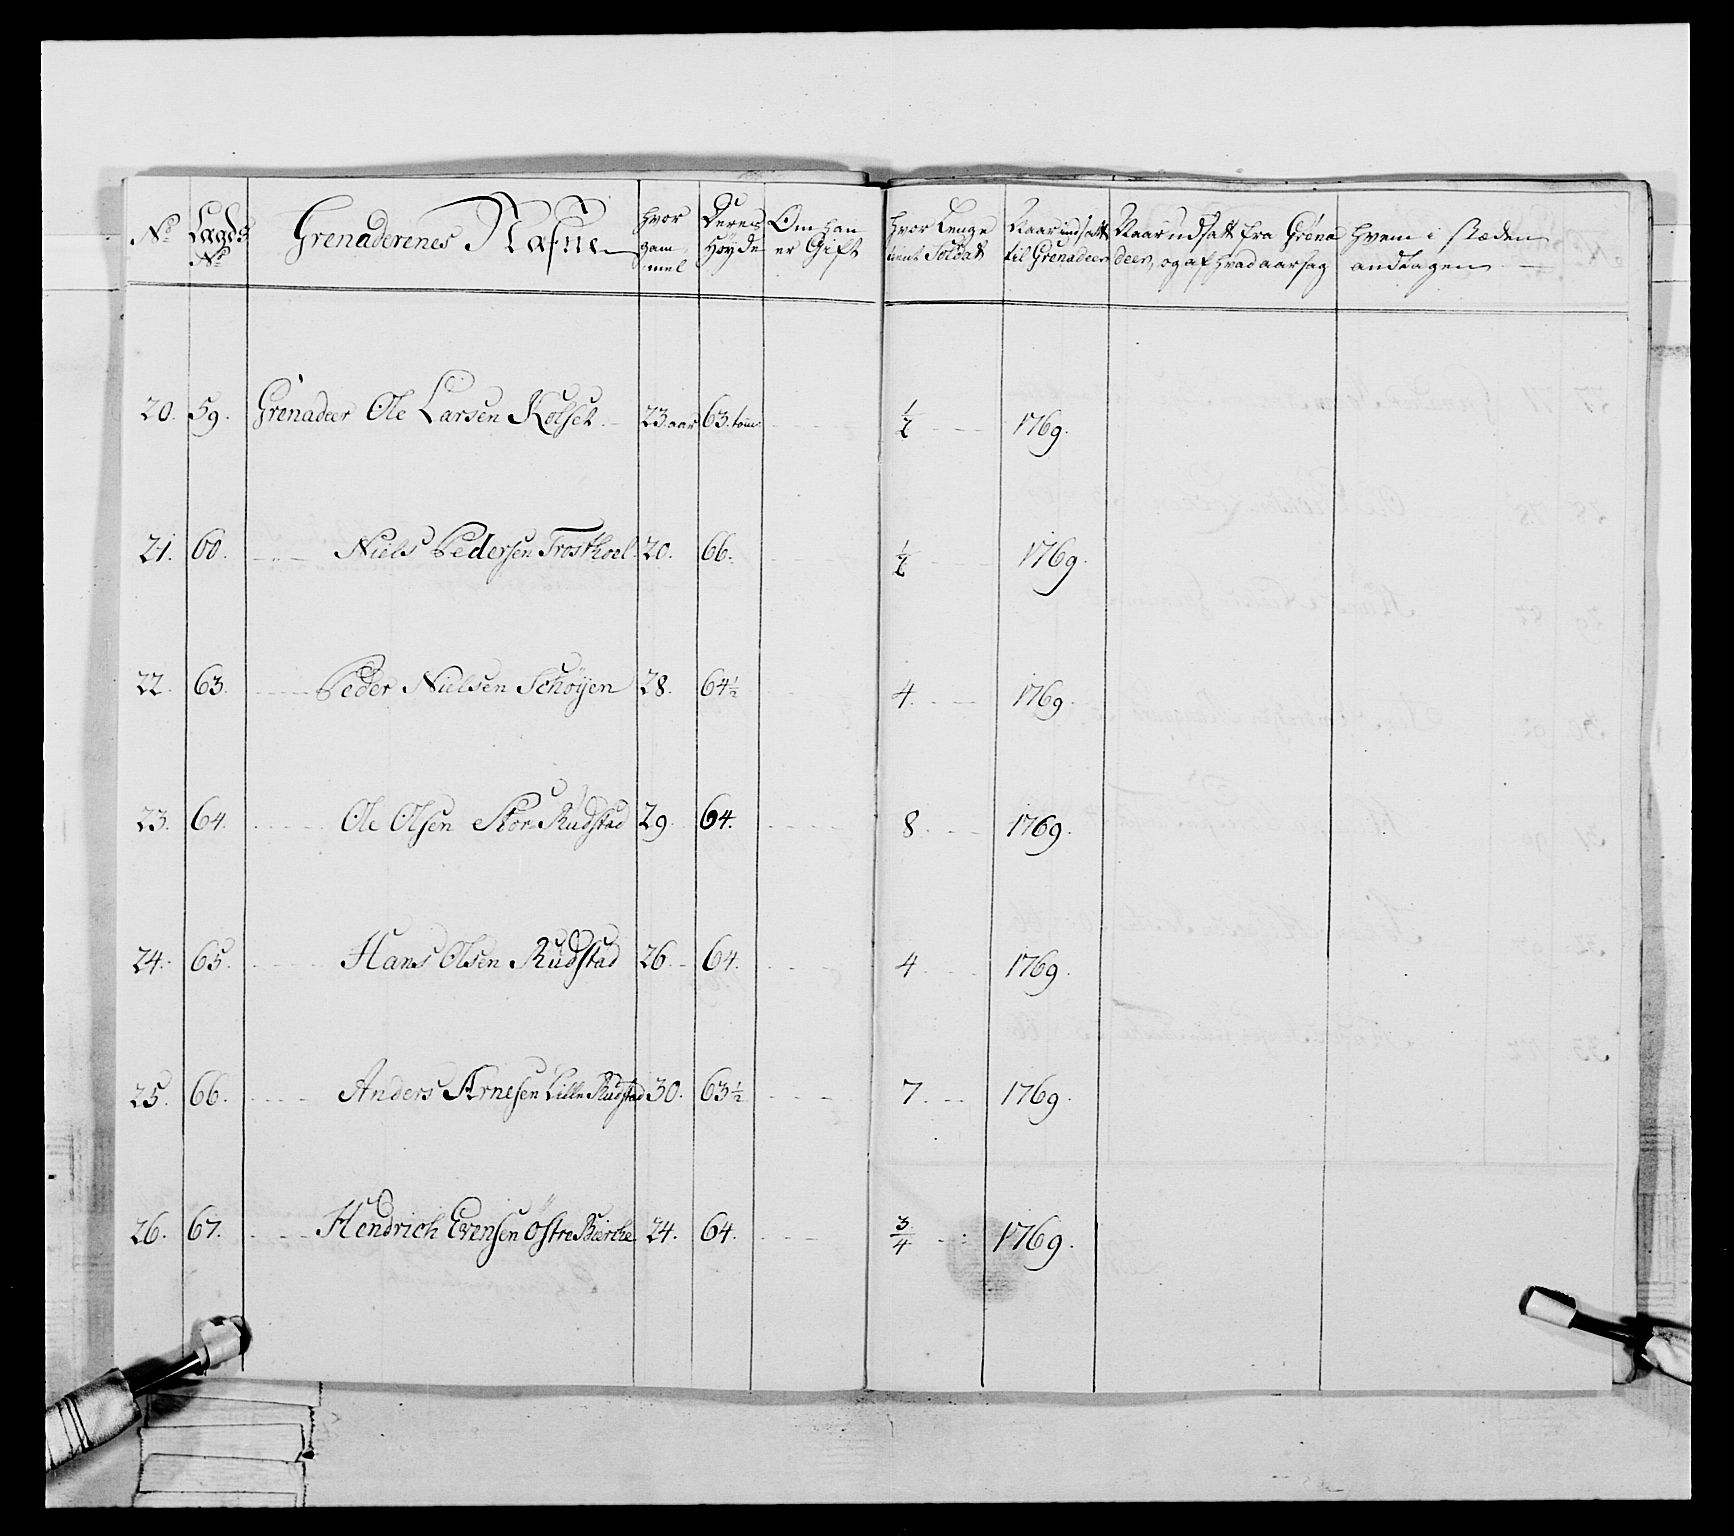 No Lægds No Grenaderenes Nafne hvor gam mel Deres Høyde Om han er Gift hvor Lenge tient Soldat Naar indsatt til Grenadeer Naar udsatt fra Grena deer, og af hvad aarsag hvem i stæden andtagen
20. 59. Grenadeer Ole Larsen Kolset 23 aar 63. tom̃ ½ 1769.
21. 60. Niels Pedersen Trosthoel 20. 66. ½ 1769.
22. 63. Peder Nielsen Schøyen 28. 64½ 4. 1769.
23. 64. Ole Olsen Stor Rudstad 29. 64. 8. 1769.
24. 65. Hans Olsen Rudstad 26. 64. 4. 1769.
25. 66. Anders Arnesen Lille Rudstad 30. 63½ 7. 1769.
26. 67. Hendrich Evensen Østre Bierche 24. 64. ¾ 1769.